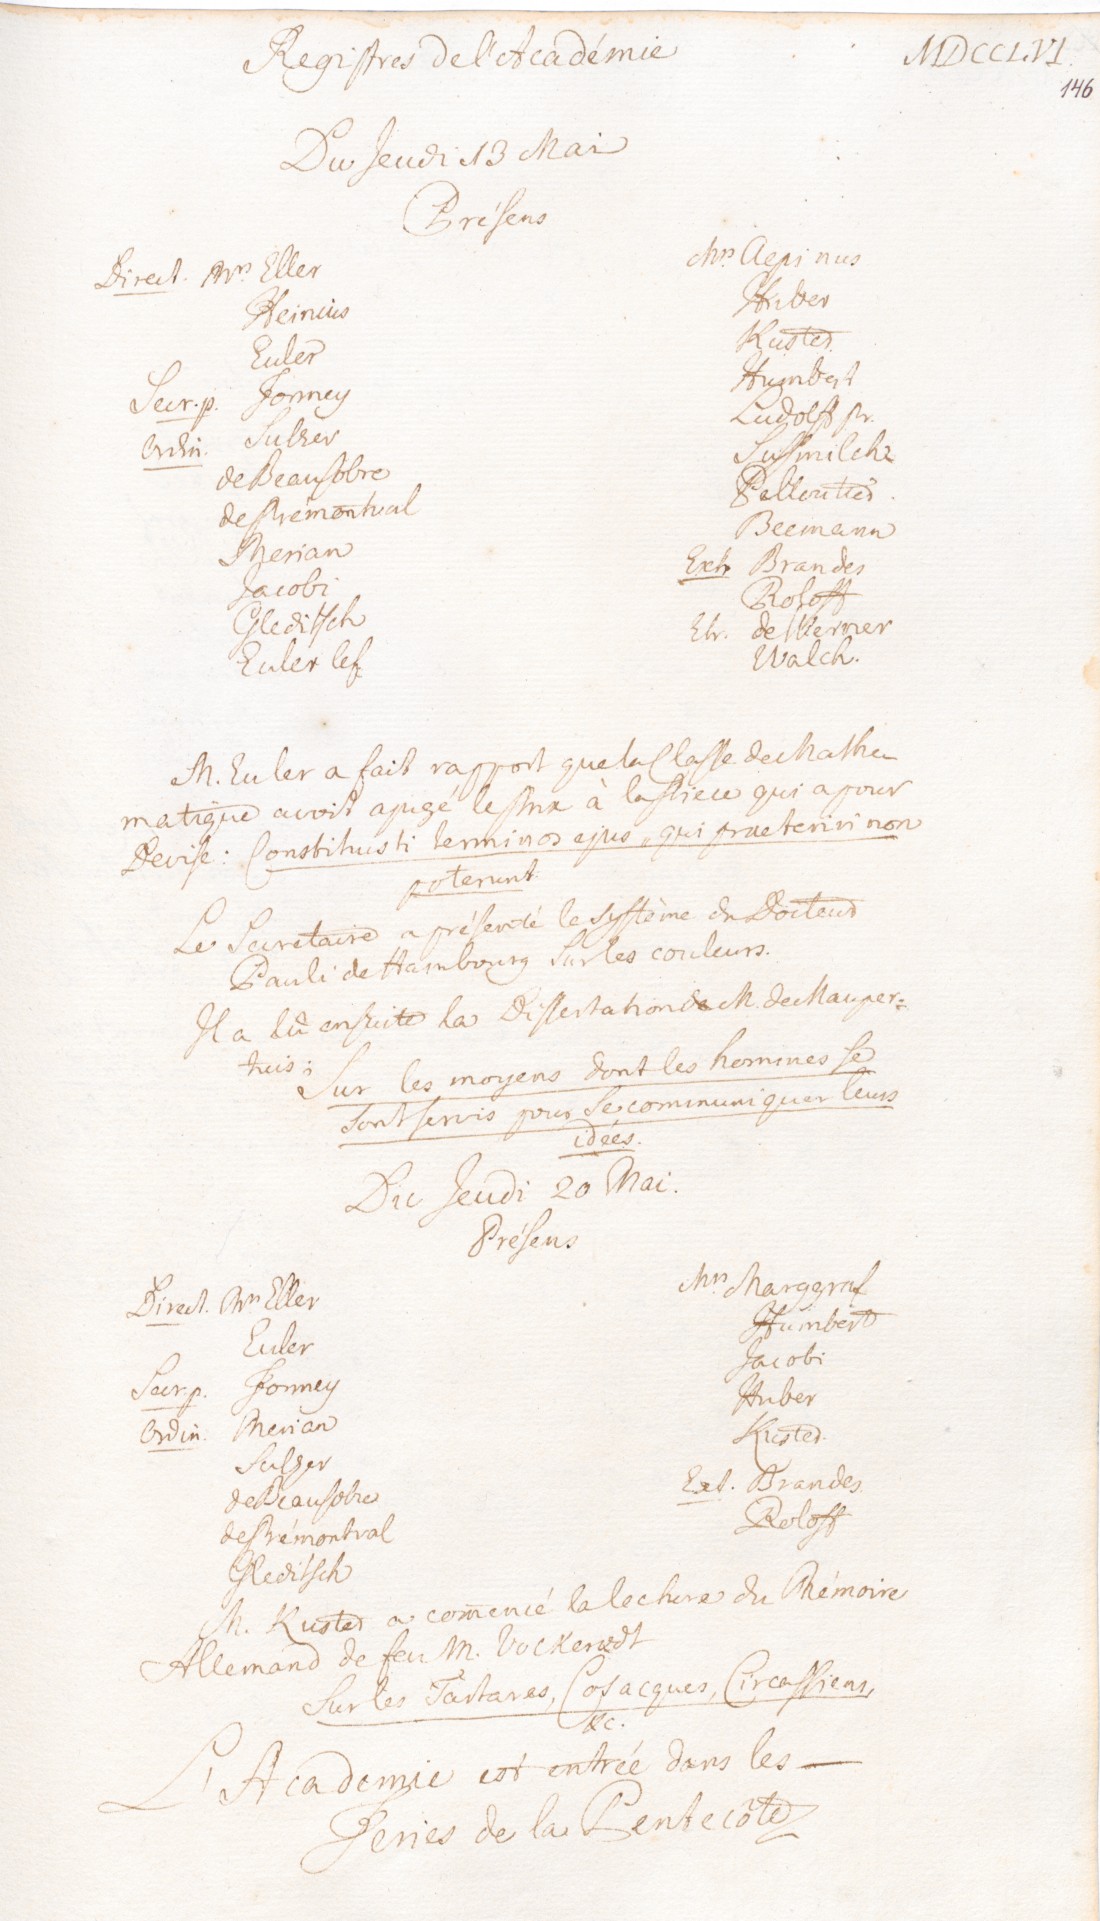 Registres de l'Académie
MDCCLVI.
146
Du Jeudi 13 Mai
Présens
Direct. Mrs. Eller
Heinius
Euler
Secr. p. Formey
Ordin. Sulzer
de Beausobre
de Prémontval
Merian
Jacobi
Gleditsch
Euler le f.
Mrs. Aepinus
Huber
Kuster
Humbert
Ludolff pr.
Sussmilch
Pelloutier.
Becmann
Extr. Brandes
Roloff
Etr. de
Walch.
M. Euler a fait rapport que la Classe de Mathe
matique avoit ajugé le Prix à la Piece qui a pour
Devise: Constituisti terminos ejus, qui praeteriri non
poterunt.
Le Secretaire a présenté le système du Docteur
Pauli de Hambourg sur les couleurs.
Il a lû ensuite la Dissertation de M. de Mauper=
tuis:
Sur les moyens dont les hommes se
sont servis pour se communiquer leurs
idées.
Du Jeudi 20 Mai.
Présens
Direct. Mrs Eller
Euler
Secr. p. Formey
Ordin. Merian
Sulzer
de Beausobre
de Prémontval
Gleditsch
Mrs Marggraf
Humbert
Jacobi
Huber
Kuster
Ext. Brandes
Roloff
M. Kuster a comencé la lecture du Mémoire
Allemand de feu M. Vockerodt
Sur les Tartares, Cosacques, Circassiens,
&c.
L'Academie est entrée dans les
Feries de la Pentecôte